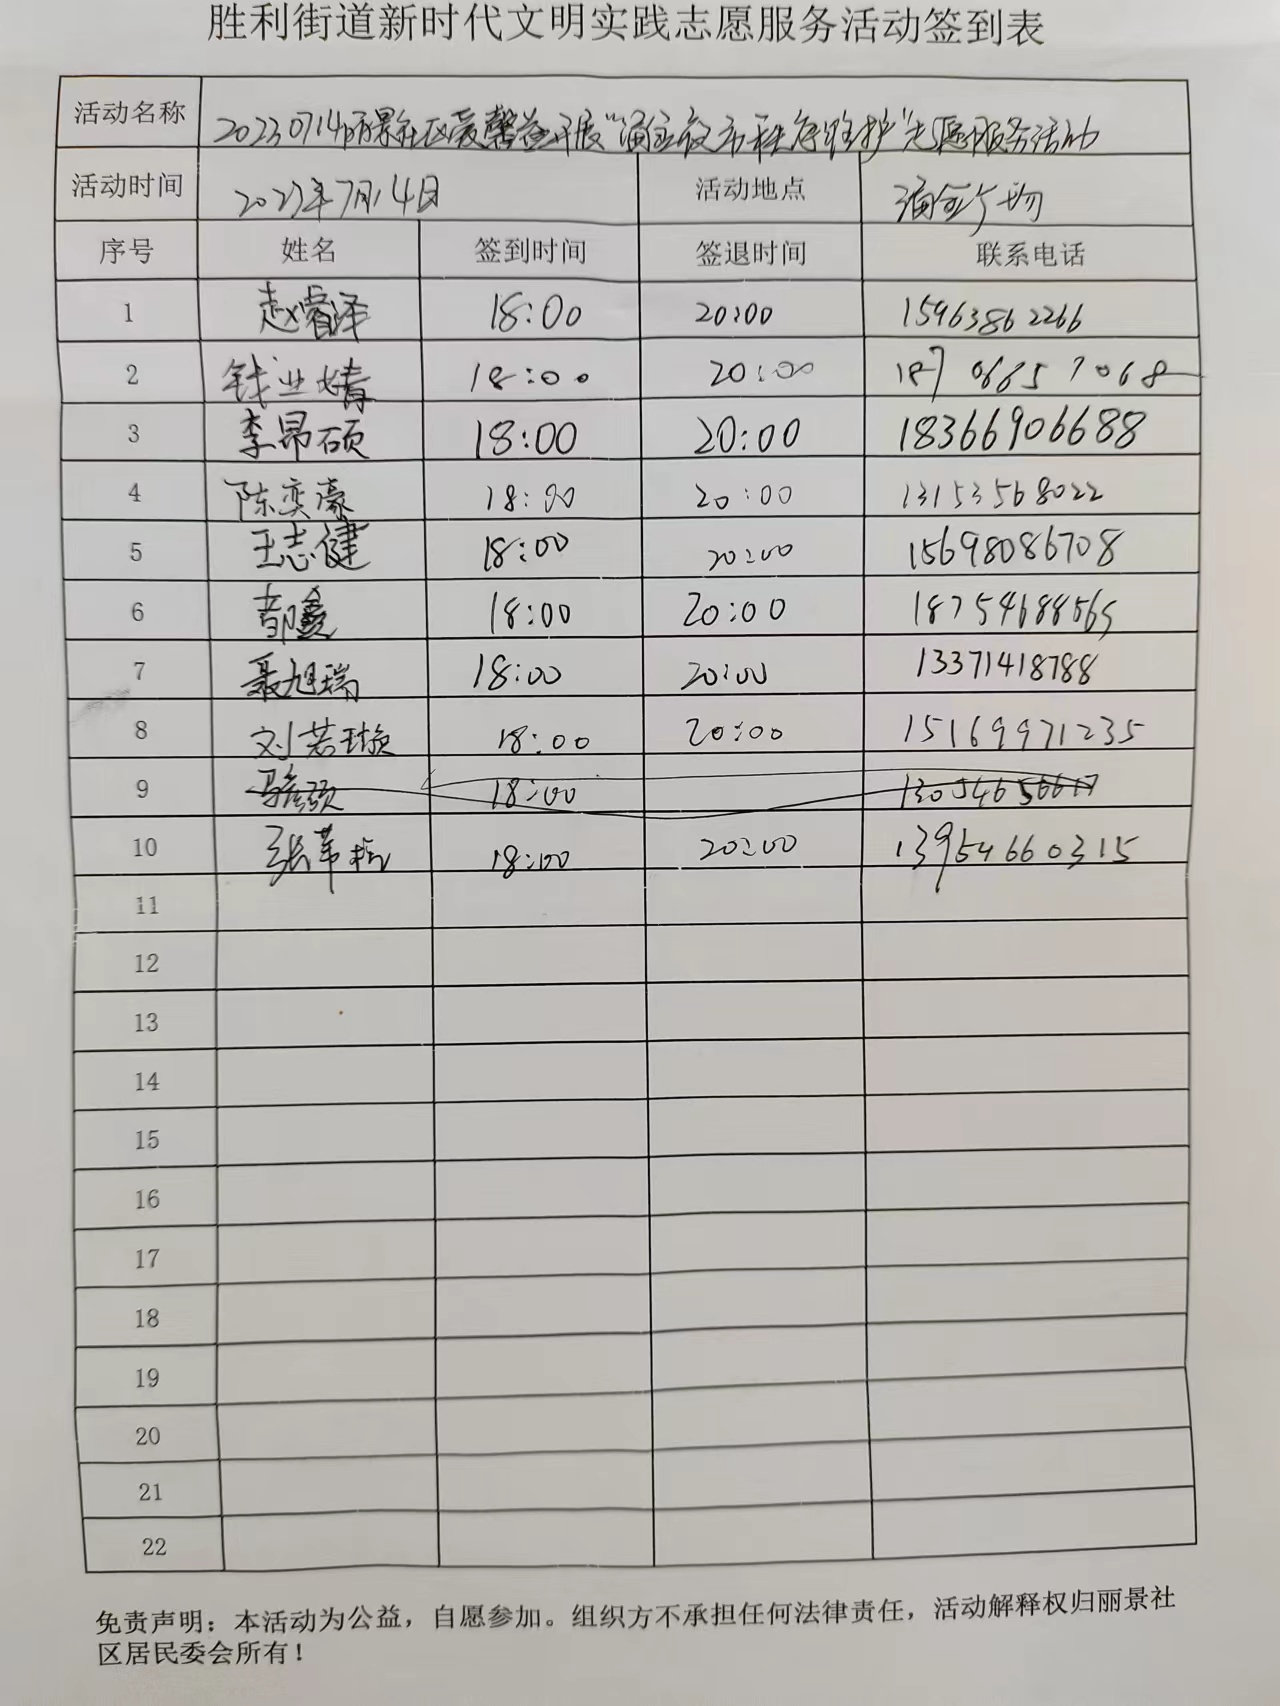 胜利街道新时代文明实践志愿服务活动签到表
活动名称 20230714丽景社区爱馨益开展"浦金夜市秩序维护"志愿服务活动
活动时间 2023年7月14日 活动地点
序号 姓名 签到时间 签退时间 联系电话
1 赵睿泽 18:00 20:00 15963862266
2 钱业婧 18:00 20:00 18706657068
3 李昂硕 18:00 20:00 18366906688
4 陈奕濠 18:00 20:00 13153568022
5 王志健 18:00 20:00 15698086708
6 18:00 20:00 18754688565
7 聂旭瑞 18:00 20:00 13371418788
8 刘若璇 18:00 20:00 15169971235
9 18:00
10 18:00 20:00 13954660315
11
12
13
14
15
16
17
18
19
20
21
22
免责声明：本活动为公益，自愿参加。组织方不承担任何法律责任，活动解释权归丽景社
区居民委会所有！